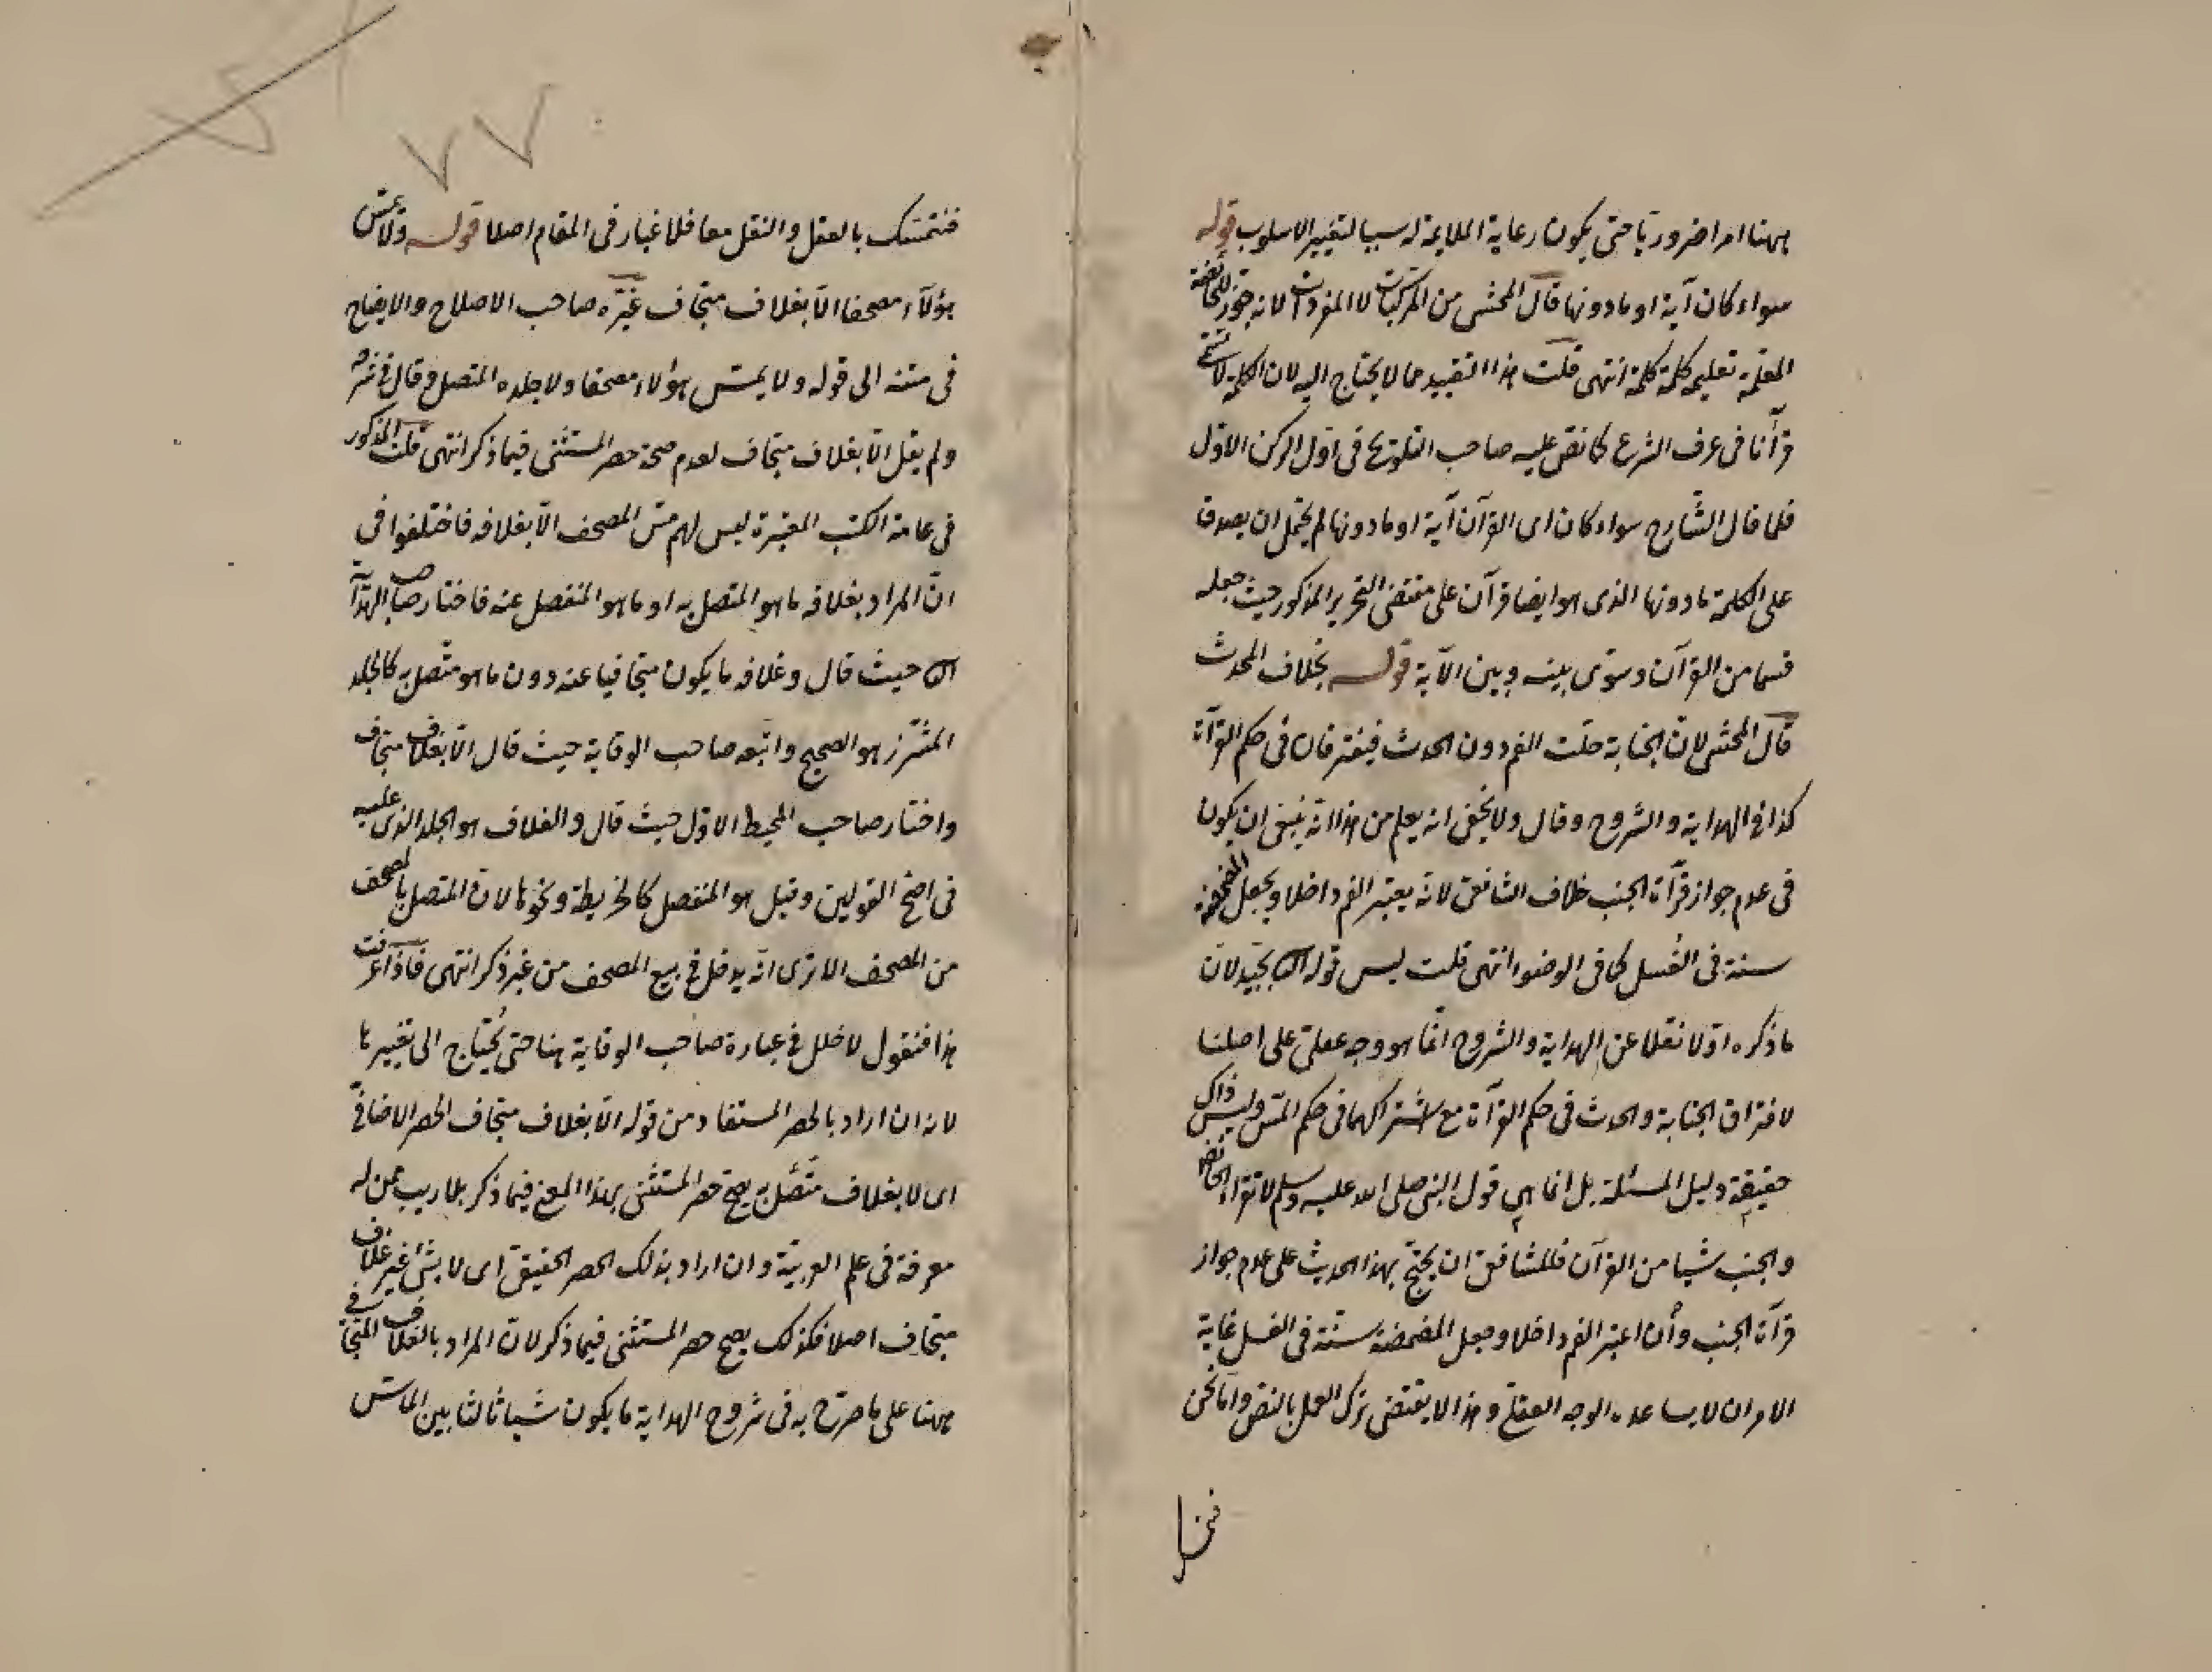 ههنا امرا ضروريا حتى يكون رعاية الملايمة له سببا لتغيير الاسلوب قوله
سواء كان آية او ما دونها قال المحشى من المركبات لا المفردات لانه جوز للحائضة
المعلمة تعليمه كلمة كلمة انتهى قلت هذا التقييد مما لا يحتاج اليه لان الكلمة لا تسمى
قرآنا فى عرف الشرع كما نص عليه صاحب التلويح فى اول الركن الاول
فلما قال الشارح سواء كان اى القرآن آية او ما دونها لم يحتمل ان يصدق
على الكلمة ما دونها الذى هو ايضا قرآن على مقتضى التحرير المذكور حيث جعله
قسما من القرآن وسوى بينه وبين الآية قوله بخلاف المحدث
قال المحشى لان الجنابة حلت الفم دون الحدث فيفترقان فى حكم القرآة
كذا فى الهداية والشروح وقال ولا يخفى انه يعلم من هذا انه ينبغى ان يكون
فى عدم جواز قرآة الجنب خلاف الشافعى لانه يعتبر الفم داخلا ويجعل المضمضة
سنة فى الغسل كما فى الوضوء انتهى قلت ليس قوله بجيد لان
ما ذكره اولا نقلا عن الهداية والشروح انما هو وجه عقلى على اصلنا
لافتراق الجنابة والحدث فى حكم القرآة مع اشتراكهما فى حكم المس وليس ذاك
حقيقة دليل المسئلة بل انما هى قول النبى صلى الله عليه وسلم لا تقراء الحائض
والجنب شيا من القرآن فللشافعى ان يحتج بهذا الحديث على عدم جواز
قرآة الجنب وأن اعتبر الفم داخلا وجعل المضمضة سنة فى الغسل غاية
الامر ان لا يساعده الوجه العقلى وهذا لا يقتضى ترك العمل بالنص واما نحن
فنتمسك بالعقل والنقل معا فلا غبار فى المقام اصلا قوله ولا تمس
هؤلآء مصحفا الا بغلاف متجاف غيّره صاحب الاصلاح والايضاح
فى متنه الى قوله ولا يمس هؤلاء مصحفا ولا جلده المتصل وقال فى شرحه
ولم يقل الا بغلاف متجاف لعدم صحة حصر المستثنى فيما ذكر انتهى قلت المذكور
فى عامة الكتب المعتبرة ليس لهم مس المصحف الا بغلافه فاختلفوا فى
ان المراد بغلافه ما هو المتصل به او ما هو المنفصل عنه فاختار صاحب الهداية
حيث قال وغلافه ما يكون متجافيا عنه دون ما هو متصل به كالجلد
المشرز هو الصحيح واتبعه صاحب الوقاية حيث قال الا بغلاف متجاف
واختار صاحب المحيط الاول حيث قال والغلاف هو الجلد الذى عليه
فى اصح القولين وقيل هو المنفصل كالخريطة ونحوها لان المتصل بالمصحف
من المصحف الا ترى انه يدخل فى بيع المصحف من غير ذكر انتهى فاذا عرفت
هذا فنقول لا خلل فى عبارة صاحب الوقاية هنا حتى يُحتاج الى تغييرها
لانه ان اراد بالحصر المستفاد من قوله الا بغلاف متجاف الحصر الاضافى
اى لا بغلاف متصل به يصح حصر المستثنى بهذا المعنى فيما ذكر بلا ريب عمن له
معرفة فى علم العربية وان اراد بذلك الحصر الحقيقى اى لا بشئ غير غلاف
متجاف اصلا فكذلك يصح حصر المستثنى فيما ذكر لان المراد بالغلاف المتجافى
ههنا على ما صرح به فى شروح الهداية ما يكون شيا ثالثا بين الماس